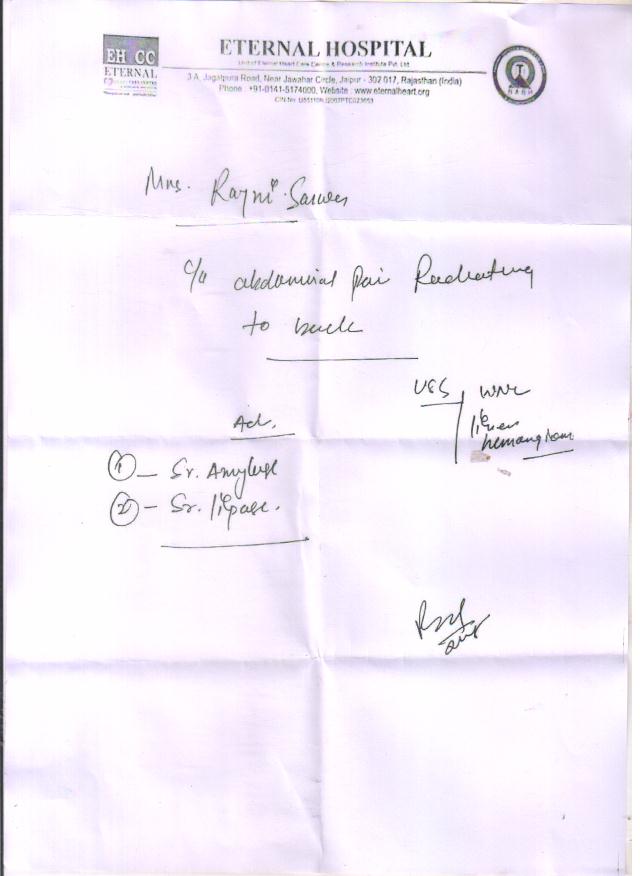 EH CC
ETERNAL
ETERNAL HOSPITAL
Unit of Eternal Heart Care Centre & Research Institute Pvt. Ltd.
3 A, Jagatpura Road, Near Jawahar Circle, Jaipur - 302 017, Rajasthan (India)
Phone : +91-0141-5174000, Website : www.eternalheart.org
CIN No.
Mrs. Rajni
c/o abdominal pain Radiating
to back
USG WNL
liver
hemangioma
Ad.
1 - Sr. Amylase
2 - Sr. lipase.